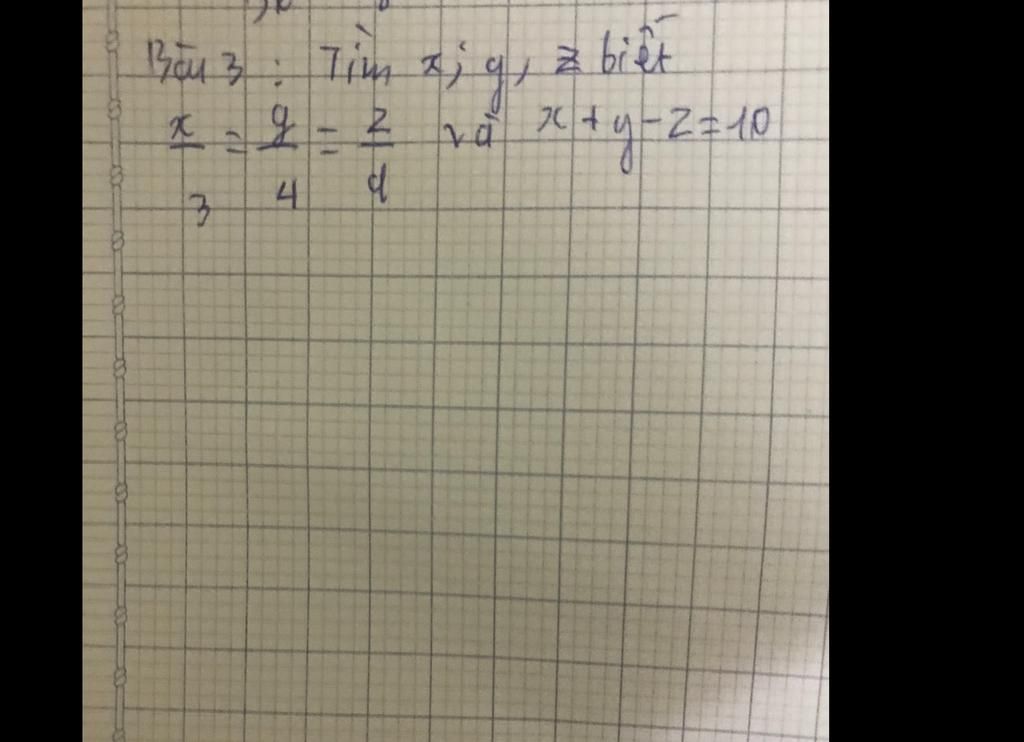 Bài 3 : Tìm x; y, z biết
x/3 = y/4 = z/d và x + y - z = 10